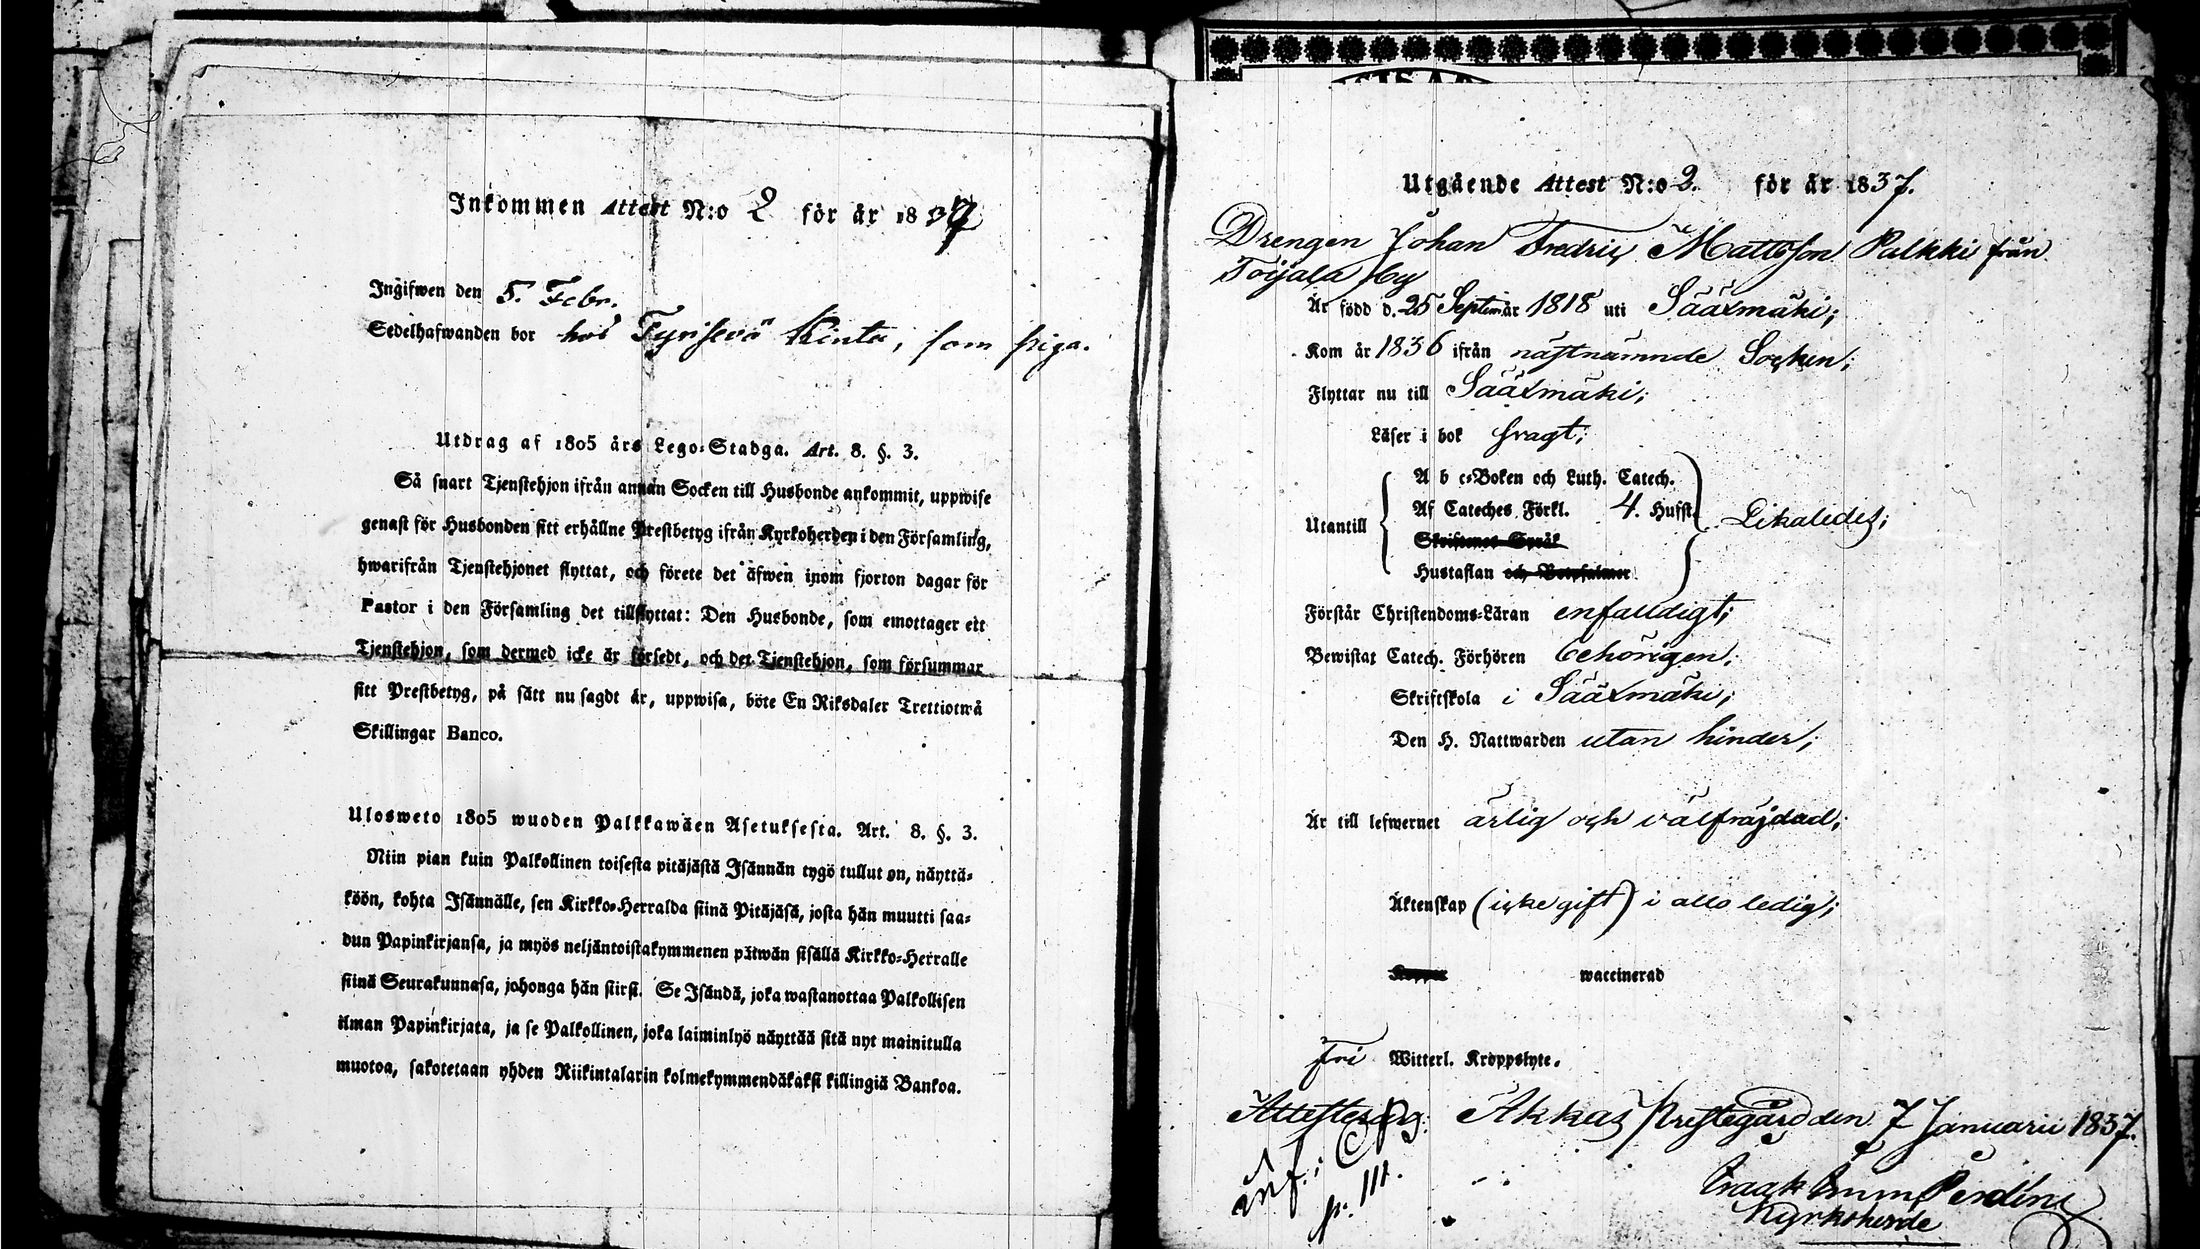 Inkommen Attest N:o 2 för år 1837
Ingifwen den 5. Febr.
Sedelhafwanden bor hos Tyrisevä Rinta, som piga.
Utdrag af 1805 års Lego-Stadga. Art. 8. §. 3.
Så snart Tjenstehjon ifrån annan Socken till Husbonde ankommit, uppwise
genast för Husbonden sitt erhållne Prestbetyg ifrån Kyrkoherden i den Församling,
hwarifrån Tjenstehjonet flyttat, och förete det äfwen inom fjorton dagar för
Pastor i den Församling det tillflyttat: Den Husbonde, som emottager ett
Tjenstehjon, som dermed icke är försedt, och det Tjenstehjon, som försummar
sitt Prestbetyg, på sätt nu sagdt är, uppwisa, böte En Riksdaler Trettiotwå
Skillingar Banco.
Ulosweto 1805 wuoden Palkkawäen Asetuksesta. Art. 8. §. 3.
Niin pian kuin Palkollinen toisesta pitäjästä Isännän tygö tullut on, näyttä-
köön, kohta Isännälle, sen Kirkko-Herralda siinä Pitäjäsä, josta hän muutti saa-
dun Papinkirjansa, ja myös neljäntoistakymmenen päiwän sisällä Kirkko-Herralle
siinä Seurakunnasa, johonga hän siirsi. Se Isändä, joka wastanottaa Palkollisen
ilman Papinkirjata, ja se Palkollinen, joka laiminlyö näyttää sitä nyt mainitulla
muotoa, sakotetaan yhden Riikintalarin kolmekymmendäkaksi killingiä Bankoa.
Utgående Attest N:o 2. för år 1837.
Drengen Johan Fredric Mattsson Palkki från
Toijala by
Är född d. 25 Septem år 1818 uti Sääxmäki;
Kom år 1836 ifrån nästnämnde Socken;
Flyttar nu till Sääxmäki;
Läser i bok svagt;
A b c-Boken och Luth. Catech.
Af Cateches Förkl. 4. Hufst.
Utantill Likaledes;
Skriftenes Språk
Hustaflan och Botpsalmer
Förstår Christendoms-Läran enfaldigt;
Bewistat Catech. Förhören behörigen;
Skriftskola i Sääxmäki;
Den H. Nattwarden utan hinder;
Är till lefwernet ärlig och välfräjdad;
Äktenskap (icke gift) i allo ledig;
Koppor waccinerad
Fri Witterl. Kroppslyte.
Attesterar: Akkas Prestegård den 7 Januarii 1837.
inf: C
p. 111.
Isaak Imm Perdén
Kyrkoherde